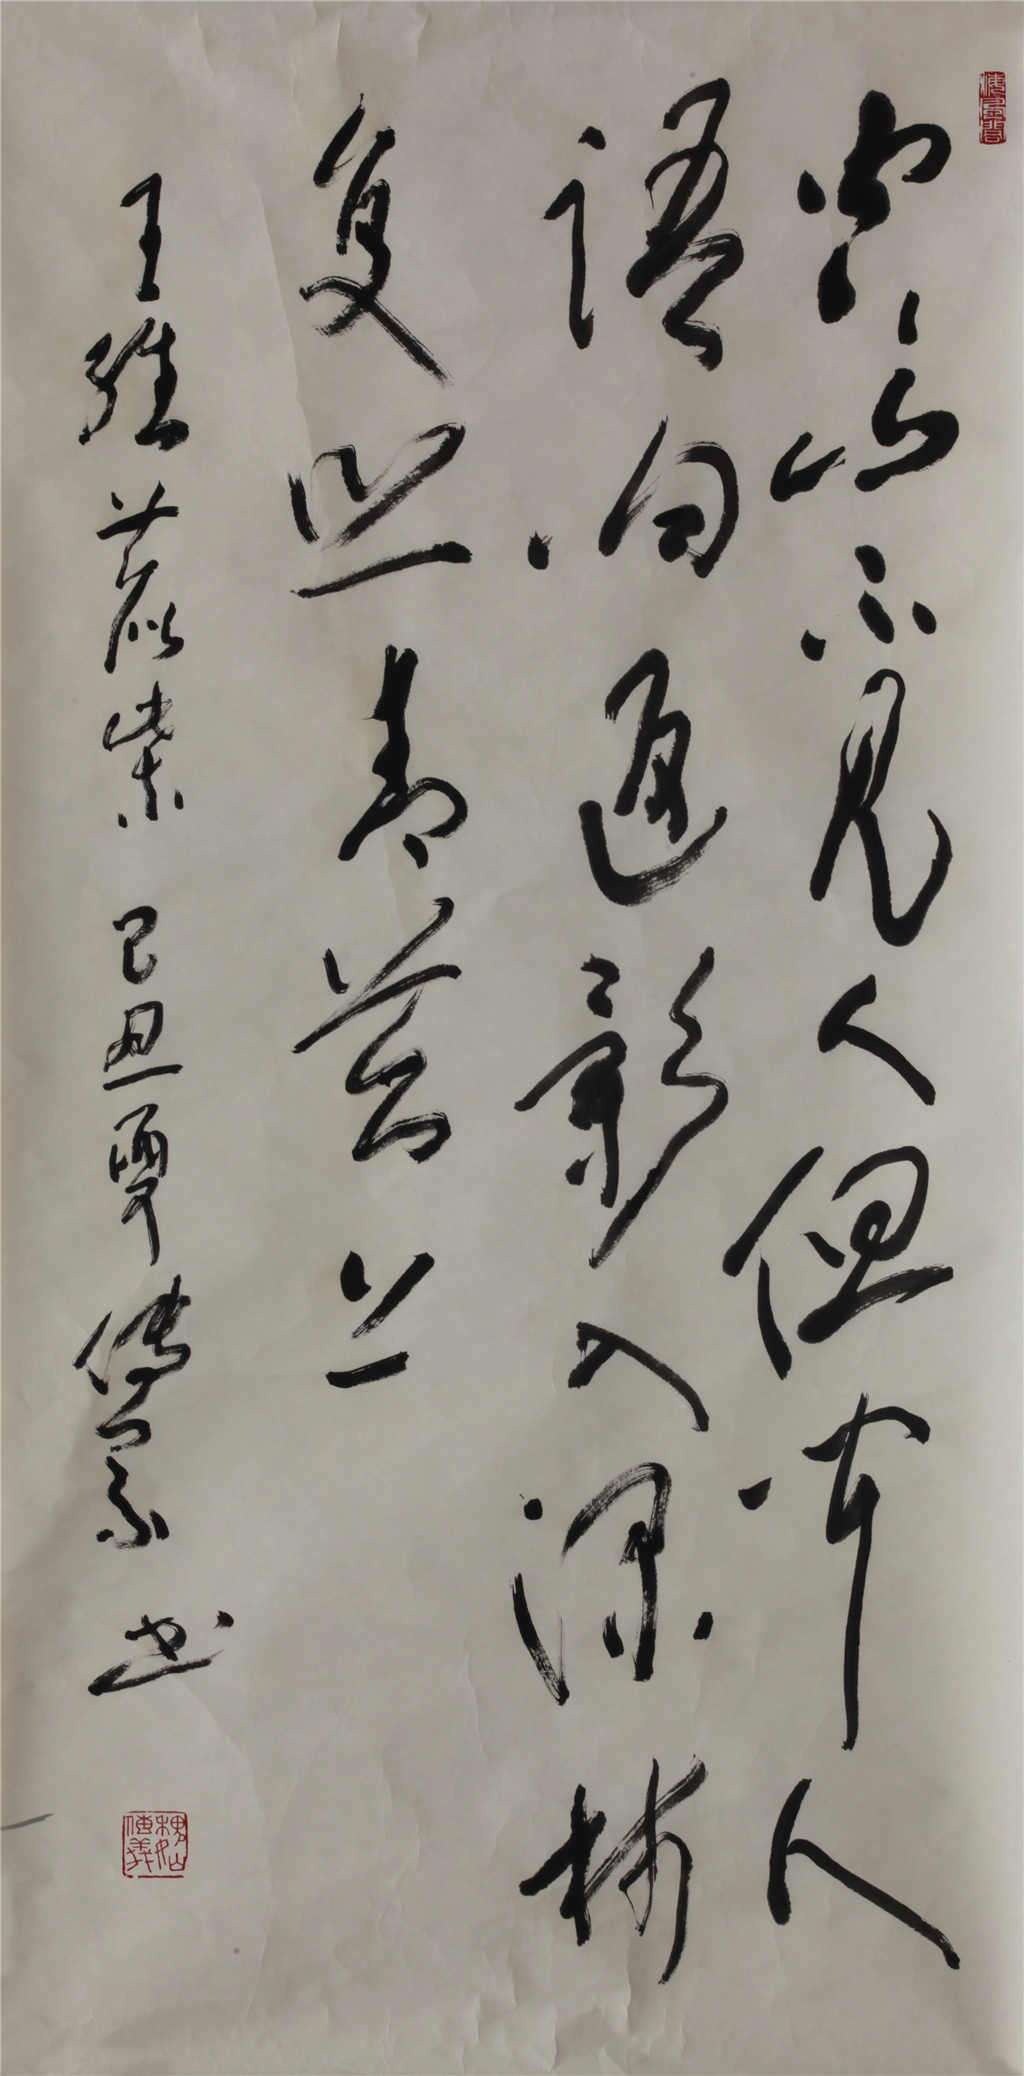 空山不见人但闻人
語响返影入深林
复照青苔上
王維鹿柴 己丑夏 傳义书